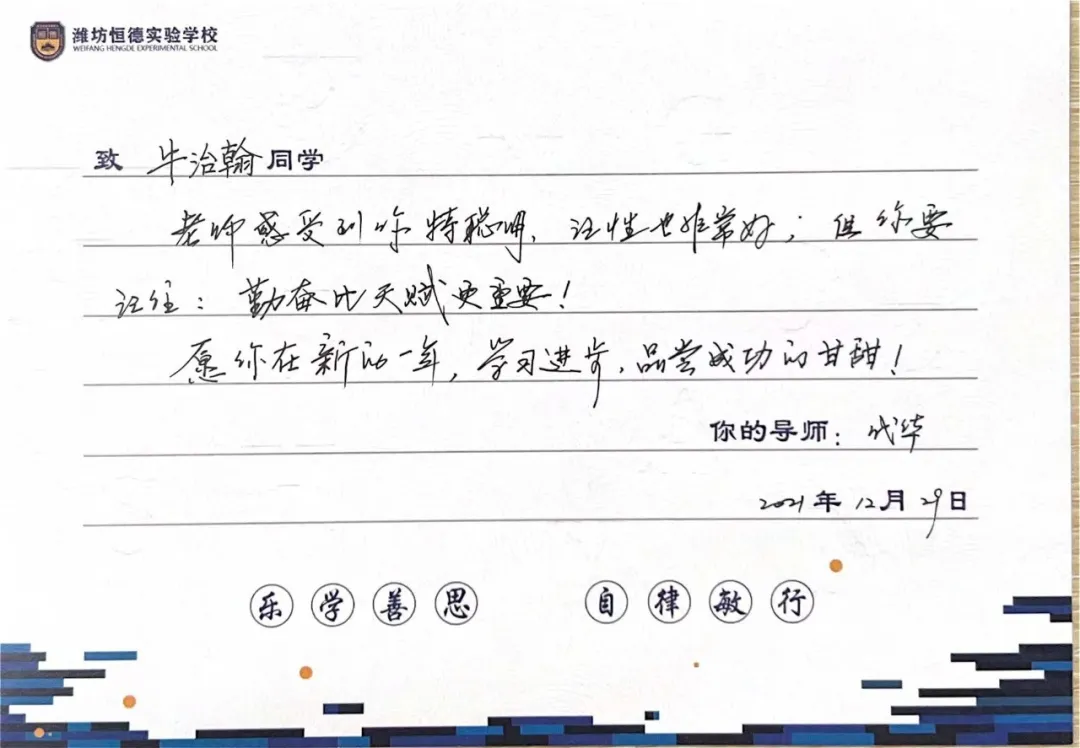 潍坊恒德实验学校
WEIFANG HENGDE EXPERIMENTAL SCHOOL
致 牛治翰同学
老师感受到你特聪明，记性也非常好；但你要
记住：勤奋比天赋更重要！
愿你在新的一年，学习进步，品尝成功的甘甜！
你的导师：代华
2021年12月29日
乐学善思 自律敏行